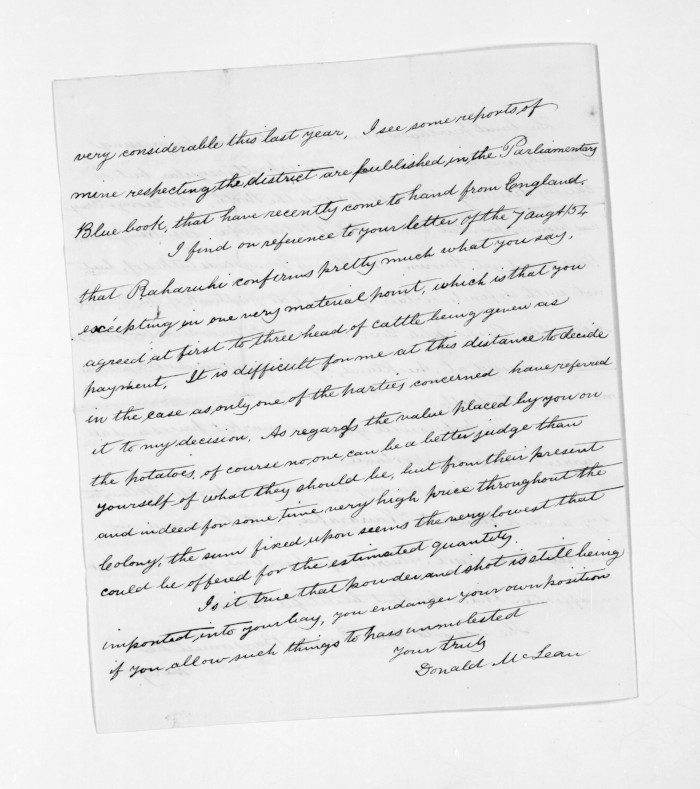 very considerable this last year. I see some reports of
mine respecting the district are published in the Parliamentary
Blue book, that have recently come to hand from England.
I find on reference to your letter of the 7 augt/54
that Raharuhi confirms pretty much what you say,
excepting in one very material point, which is that you
agreed at first to three head of cattle being given as
payment. It is difficult for me at this distance to decide
in the case as only one of the parties concerned have referred
it to my decision. As regards the value placed by you on
the potatoes, of course no one can be a better judge than
yourself of what they should be, but from their present
and indeed for some time very high price throughout the
Colony, the sum fixed upon seems the very lowest that
could be offered for the estimated quantity.
Is it true that powder and shot is still being
imported into your bay, you endanger your own position
if you allow such things to pass unmolested
Your truly
Donald McLean